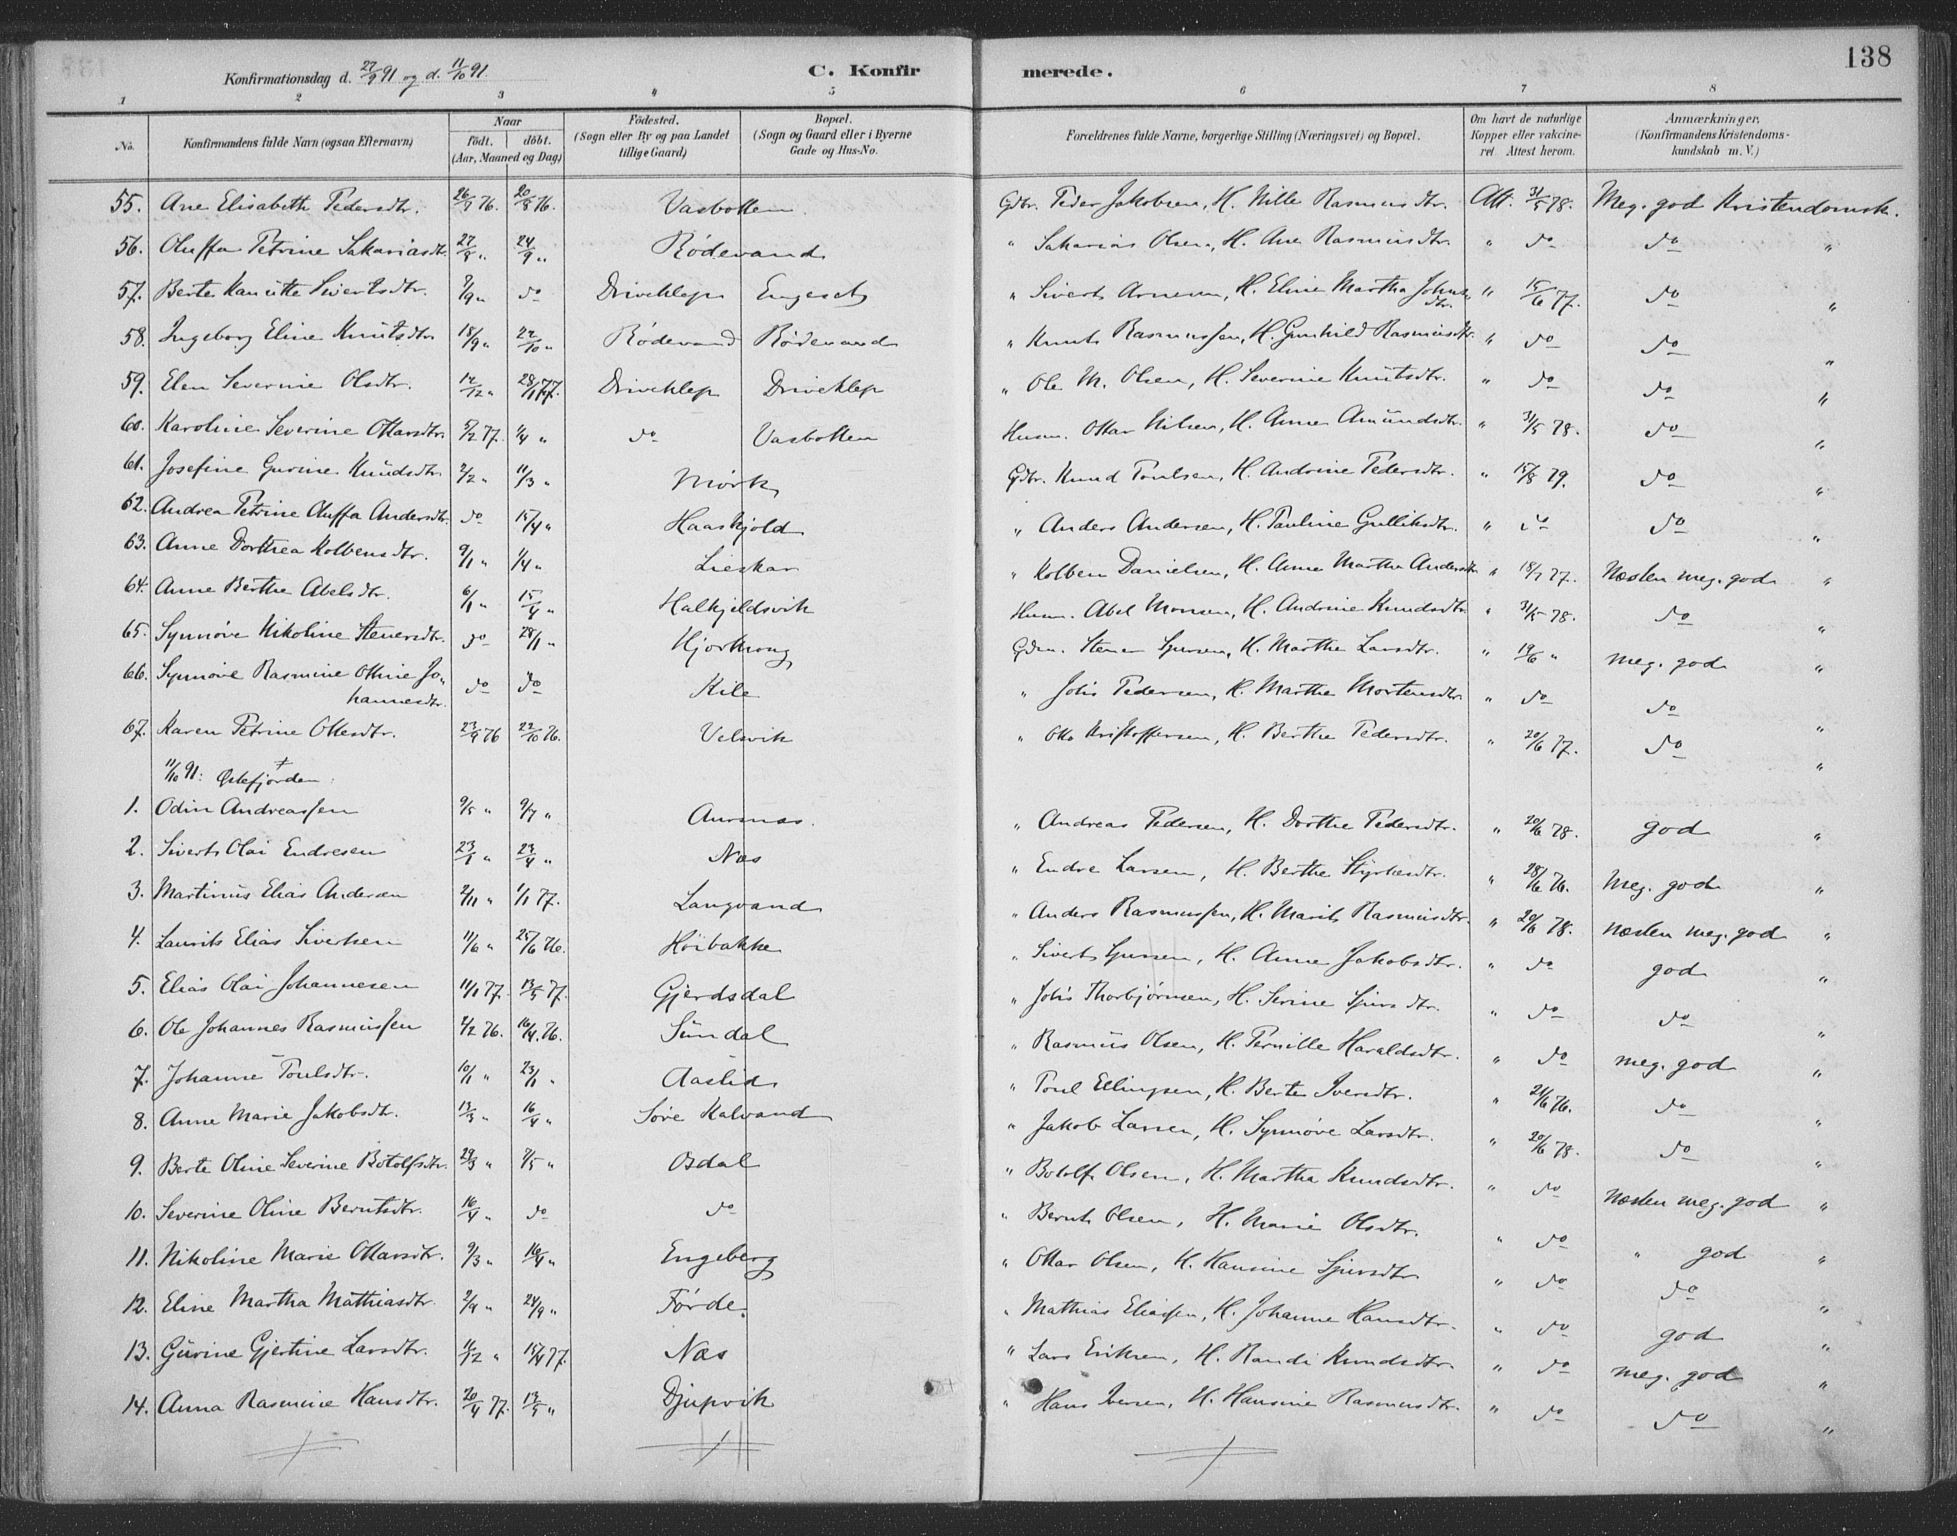 138
Konfirmationsdag d. 27/9 91 og d. 11/10 91.
C. Konfirmerede.
1 2 3 4 5 6 7 8
No. Konfirmandens fulde Navn (ogsaa Efternavn) Naar födt. döbt. (Aar, Maaned og Dag) Födested. (Sogn eller By og paa Landet tillige Gaard) Bopæl. (Sogn og Gaard eller i Byerne Gade og Hus-No. Forældrenes fulde Navne, borgerlige Stilling (Næringsvei) og Bopæl. Om havt de naturlige Kopper eller vakcineret. Attest herom. Anmærkninger. (Konfirmandens Kristendomskundskab m. V.)
55. Ane Elisabeth Pedersdtr. 76. 20/8 76. Vasbotten. Gdbr. Peder Jakobsen, H. Nille Rasmusdtr. Att. 31/5 78. Meg. god Kristendomsk.
56. Oluffa Petrine Sakariasdtr. 27/8 " 24/9 " Rödevand " Sakarias Olsen, H. Ane Rasmusdtr. " do do "
57. Berte Kanutte Sivertsdtr. do Driveklep Engeset " Sivert Arnesen, H. Eline Martha Johnsdtr. " 15/6 77. do "
58. Ingeborg Eline Knutsdtr. 18/9 " 22/10 " Rödevand Rödevand " Knut Rasmussen, H. Gunhild Rasmusdtr. " do do "
59. Elen Severine Olsdtr. 12/12 " 28/1 77. Driveklep Driveklep " Ole M. Olsen, H. Severine Knutsdtr. " do do "
60. Karoline Severine Ottarsdtr. 5/2 77. 1/4 " do Vasbotten Husm. Ottar Nilsen, H. Anne Amundsdtr. " 31/5 78. do "
61. Josefine Gurine Knudsdtr. 2/2 " 11/3 " Mørk Gdbr. Knud Poulsen, H. Andrine Pedersdtr. " 15/8 79. do "
62. Andrea Petrine Oluffa Andersdtr. do 15/4 " Haaskjold " Anders Andersen, H. Pauline Gulliksdtr. " do do "
63. Anne Dorthea Kolbensdtr. 9/1 " 1/4 " Lieskar " Kolben Danielsen, H. Anne Martha Andersdtr. " 18/7 77. Næsten meg. god "
64. Anne Berthe Abelsdtr. 6/1 " 15/4 " Halkjeldsvik Husm. Abel Monsen, H. Andrine Knudsdtr. " 31/5 78. do "
65. Synnøve Nikoline Stenersdtr. do 28/1 " Hjorthoug Gdm. Stener Sjursen, H. Marthe Larsdtr. " 19/6 " meg. god "
66. Synnøve Rasmine Othine Johannesdtr. do do Kile " Johs Pedersen, H. Marthe Mortensdtr. " do do "
67. Karen Petrine Ottesdtr. 23/9 76 22/10 76. Velsvik " Otto Kristoffersen, H. Berthe Pedersdtr. " 20/6 77. do "
11/10 91: Østefjorden:
1. Odin Andreassen 9/5 " 9/7 " Aursnæs. " Andreas Pedersen, H. Dorthe Pedersdtr. " 20/6 78. god "
2. Sivert Olai Endresen 23/1 " 23/4 " Næs " Endre Larsen, H. Berthe Styrkesdtr. " 28/6 76. Meg. god "
3. Martinus Elias Andersen 2/11 " 1/1 77. Langvand " Anders Rasmussen, H. Marit Rasmusdtr. " 20/6 78. Næsten meg. god "
4. Laurits Elias Sivertsen 11/6 " 25/6 76. Höibakke " Sivert Sjursen, H. Anne Jakobsdtr. " do god "
5. Elias Olai Johannesen 11/1 77. 13/5 77. Gjerdsdal " Johs Thorbjörnsen, H. Serine Sjursdtr. " do do "
6. Ole Johannes Rasmussen 2/2 76. 16/4 76. Sundal " Rasmus Olsen, H. Pernille Haraldsdtr. " do meg. god "
7. Johanne Poulsdtr. 10/1 " 23/1 " Aaslid " Poul Ellingsen, H. Berte Iversdtr. " 21/6 76. do "
8. Anne Marie Jakobsdtr. 13/3 " 16/4 " Söre Kalvand " Jakob Larsen, H. Synnøve Larsdtr. " 20/6 78. do "
9. Berte Oline Severine Botolfsdtr. 29/3 " 7/5 " Osdal " Botolf Olsen, H. Martha Knudsdtr. " do Næsten meg. god "
10. Severine Oline Berntsdtr. 16/4 " do do " Bernt Olsen, H. Marie Olsdtr. " do " god "
11. Nikoline Marie Ottarsdtr. 9/3 " 16/4 " Engeberg " Ottar Olsen, H. Hansine Sjursdtr " do do "
12. Eline Martha Mathiasdtr. 2/9 " 24/9 " Förde. " Mathias Eliassen, H. Johanne Hansdtr. " do god "
13. Gurine Gjertine Larsdtr. 11/12 " 15/4 77. Næs " Lars Eriksen, H. Randi Knudsdtr. " do meg. god "
14. Anna Rasmine Hansdtr. 20/4 77. 13/5 " Djupvik " Hans Iversen, H. Hansine Rasmusdtr. " do do "